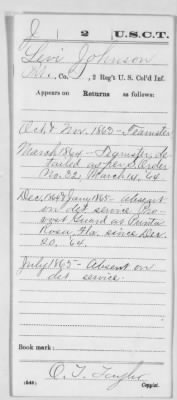 J 2 U.S.C.T.
Levi Johnson
Pvt., Co. , 2 Reg't U. S. Col'd Inf.
Appears on Returns as follows:
Oct & Nov. 1863 - Teamster
March 1864 - Teamster, de-
tailed as per S. Order
No. 32, March 14, 64
Dec. 1864 & Jany 1865 - Absent
on det service Pro-
vost Guard at Punta
Rosa, Fla. since Dec.
20. 64
July 1865 - Absent on
det service.
Book mark:
(546)
Copyist.